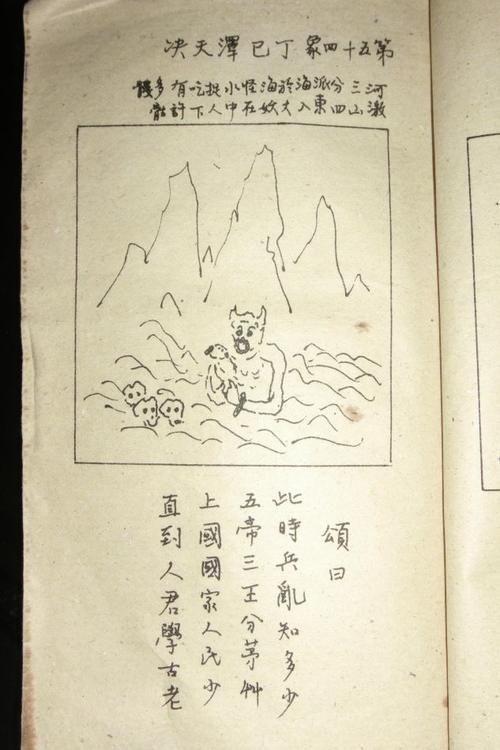 第五十四象丁巳澤天决
河激三山分四派東海入於大海妖怪在小中捉人吃下有許多骷髏
頌曰
此時兵亂知多少
五帝三王分茅艸
上國國家人民少
直到人君學古老